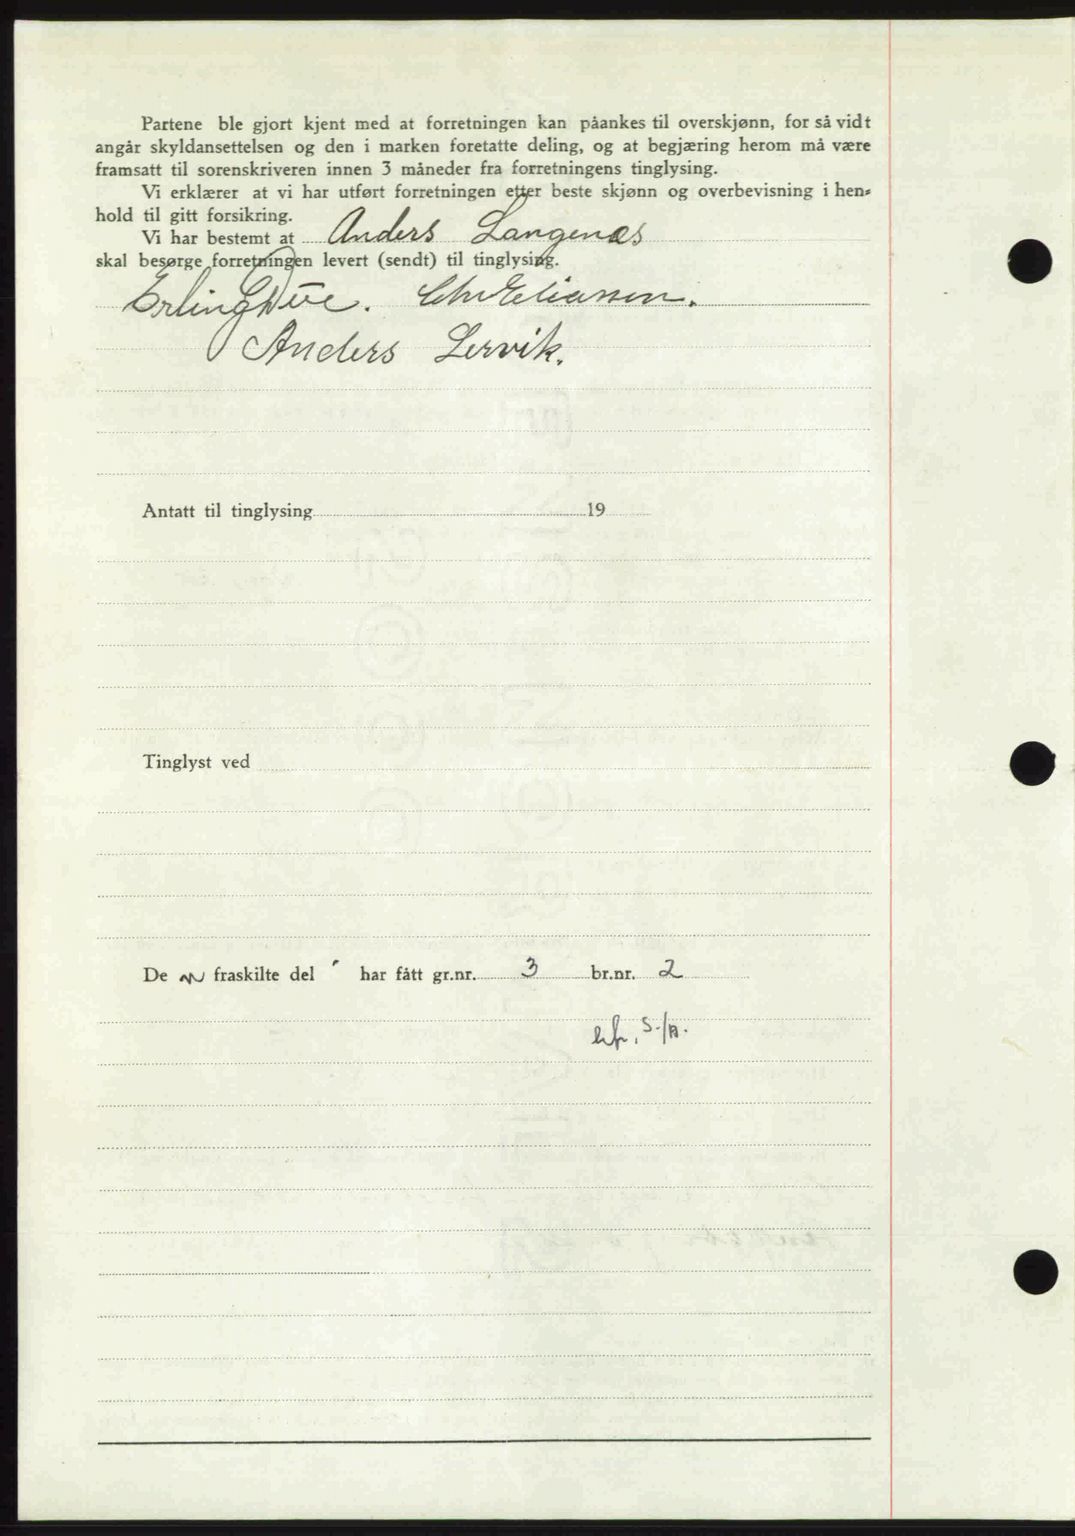 Partene ble gjort kjent med at forretningen kan påankes til overskjønn, for så vidt
angår skyldansettelsen og den i marken foretatte deling, og at begjæring herom må være
framsatt til sorenskriveren innen 3 måneder fra forretningens tinglysing.
Vi erklærer at vi har utført forretningen etter beste skjønn og overbevisning i hen-
hold til gitt forsikring.
Vi har bestemt at Anders Langenes
skal besørge forretningen levert (sendt) til tinglysing.
Erling Chr Eliassen.
Anders Lervik.
Antatt til tinglysing 19
Tinglyst ved
De fraskilte del har fått gr.nr. 3 br.nr. 2